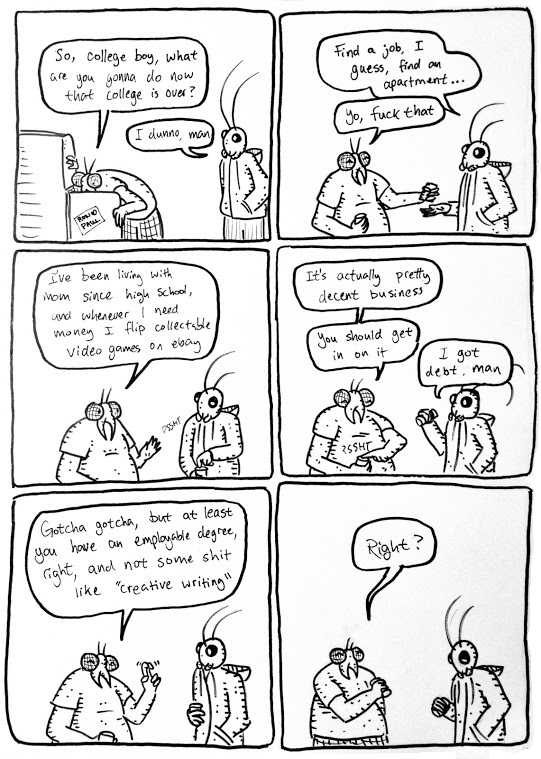 So, college boy, what
are you gonna do now
that college is over?
I dunno, man
Find a job, I
guess, find an
apartment...
Yo, fuck that
I've been living with
mom since high school,
and whenever I need
money I flip collectable
video games on ebay
PSSHT
It's actually pretty
decent business
You should get
in on it
I got
debt, man
PSSHT
Gotcha gotcha, but at least
you have an employable degree,
right, and not some shit
like "creative writing"
Right?